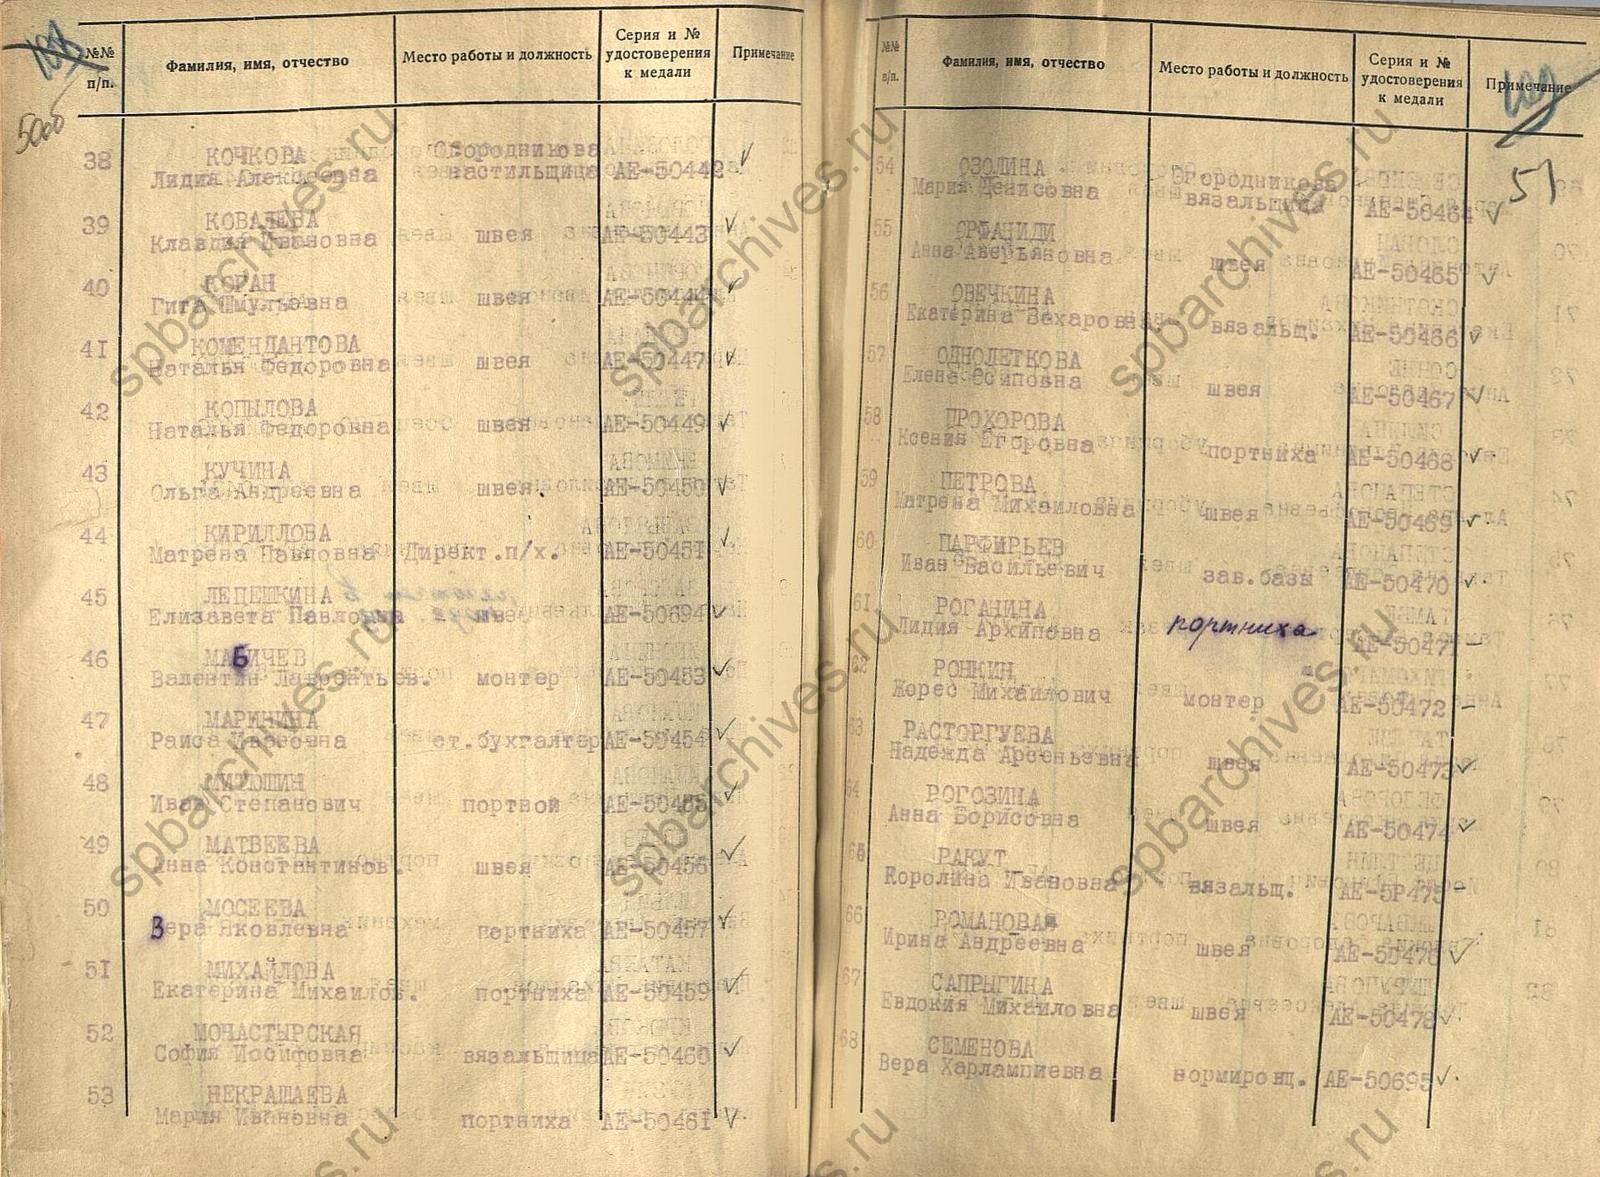 №№ п/п.
Фамилия, имя, отчество
Место работы и должность
Серия и № удостоверения к медали
Примечание
50об
38 КОЧКОВА Огородникова
Лидия Алексеевна настильщица АЕ-50442 ✓
39 КОВАЛЕВА
Клавдия Ивановна швея АЕ-50443 ✓
40 КОРАН
Гита Шмульевна швея АЕ-50444 ✓
41 КОМЕНДАНТОВА
Наталья Федоровна швея АЕ-50447 ✓
42 КОПЫЛОВА
Наталья Федоровна швея АЕ-50449 ✓
43 КУЧИНА
Ольга Андреевна швея. АЕ-50450 ✓
44 КИРИЛЛОВА
Матрена Павловна Директ.п/х. АЕ-50451 ✓
45 ЛЕПЕШКИНА
Елизавета Павловна швея АЕ-50694 ✓
46 МАБИЧЕВ
Валентин Лаврентьев. монтер АЕ-50453 ✓
47 МАРИНИНА
Раиса ст.бухгалтер АЕ-50454 ✓
48 МИТЮШИН
Иван Степанович портной АЕ-50455 ✓
49 МАТВЕЕВА
Анна Константинов. швея АЕ-50456 ✓
50 МОСЕЕВА
Вера Яковлевна портниха АЕ-50457 ✓
51 МИХАЙЛОВА
Екатерина Михайлов. портниха АЕ-50459 ✓
52 МОНАСТЫРСКАЯ
София Иосифовна вязальщица АЕ-50460 ✓
53 НЕКРАШАЕВА
Мария Ивановна портниха АЕ-50461 ✓
№№ п/п.
Фамилия, имя, отчество
Место работы и должность
Серия и № удостоверения к медали
Примечание
51
54 ОЗОЛИНА Огородникова
Мария Денисовна вязальщица АЕ-50464 ✓
55 ОРФАНИДИ
Анна Аверьяновна швея АЕ-50465 ✓
56 ОВЕЧКИНА
Екатерина Захаровна вязальщ. АЕ-50466 ✓
57 ОДНОЛЕТКОВА
Елена Осиповна швея АЕ-50467 ✓
58 ПРОХОРОВА
Ксения Егоровна портниха АЕ-50468 ✓
59 ПЕТРОВА
Матрена Михайловна швея АЕ-50469 ✓
60 ПАРФИРЬЕВ
Иван Васильевич зав.базы АЕ-50470 ✓
61 РОГАНИНА
Лидия Архиповна портниха АЕ-50471 –
62 РОНКИН
Жорес Михайлович монтер АЕ-50472 –
63 РАСТОРГУЕВА
Надежда Арсеньевна швея АЕ-50473 ✓
64 РОГОЗИНА
Анна Борисовна швея АЕ-50474 ✓
65 РАКУТ
Королина Ивановна вязальщ. АЕ-5Р475 –
66 РОМАНОВАЯ
Ирина Андреевна швея АЕ-50476 ✓
67 САПРЫГИНА
Евдокия Михайловна швея АЕ-50478 ✓
68 СЕМЕНОВА
Вера Харлампиевна нормировщ. АЕ-50695 ✓
spbarchives.ru